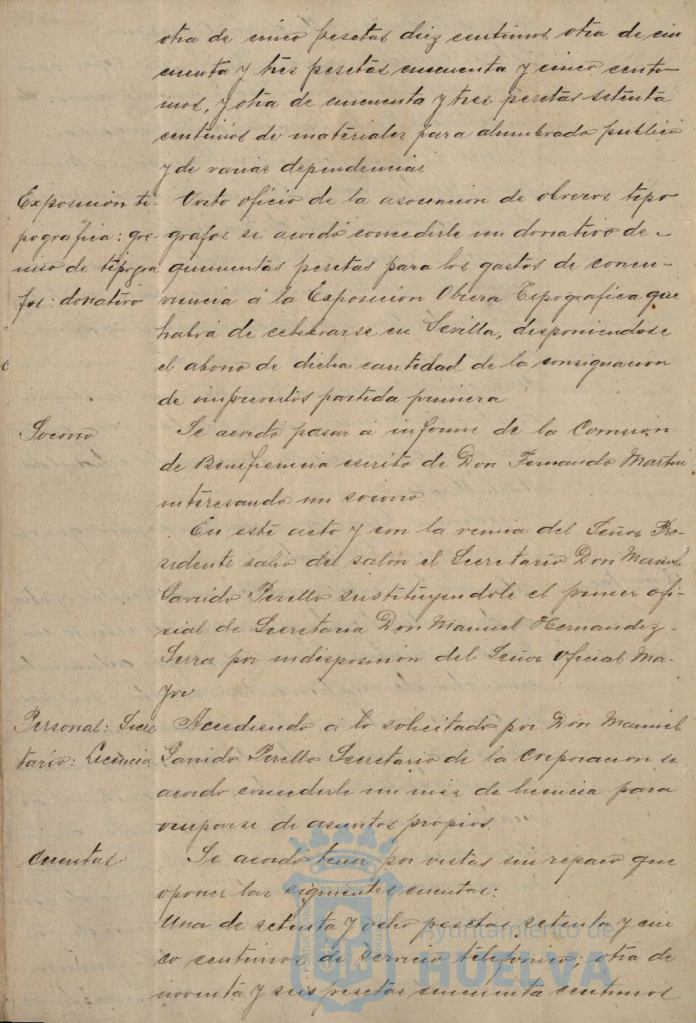 otra de cinco pesetas diez centimos otra de cin
cuenta y tres pesetas cincuenta y cinco centi-
mos, y otra de cincuenta y tres pesetas setenta
centimos de materiales para alumbrado publico
y de varias dependencias
Exposición ti-
pografica: gre-
mio de tipogra
fos: donativo
Visto oficio de la asociacion de obreros tipo
grafos se acordó concederle un donativo de
quinientas pesetas para los gastos de concu-
rrencia á la Exposicion Obrera Tipografica que
habrá de celebrarse en Sevilla, disponiendose
el abono de dicha cantidad de la consignacion
de imprevistos partida primera
Socorro
Se acordo pasar á informe de la Comision
de Beneficencia escrito de Don Fernando Martin
interesando un socorro
En este acto y con la venia del Señor Pre-
sidente salio del salon el Secretario Don Manuel
Garrido Perelló sustituyendole el primer ofi-
cial de Secretaria Don Manuel Hernandez
Serra por indisposicion del Señor Oficial Ma-
yor
Personal: Secre
tario: Licencia
Accediendo á lo solicitado por Don Manuel
Garrido Perello Secretario de la Corporacion se
acordo concederle un mes de licencia para
ocuparse de asuntos propios.
Cuentas
Se acordó tener por vistas sin reparo que
oponer las siguientes cuentas:
Una de setenta y ocho pesetas setenta y cin
co centimos de servicio telefonico; otra de
noventa y seis pesetas cincuenta centimos
Ayuntamiento de
HUELVA